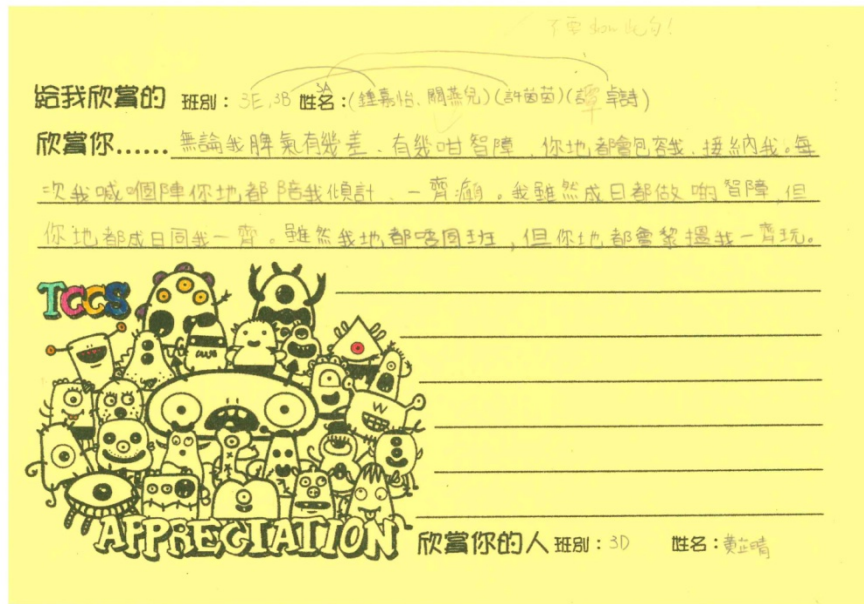 給我欣賞的 班別：3E, 3B 3A 姓名：(鍾嘉怡、關燕兒)(許茵茵)(譚卓詩)
欣賞你……無論我脾氣有幾差、有幾咁智障，你地都會包容我、接納我。每
次我喊嗰陣你地都陪我傾計、一齊癲。我雖然成日都做啲智障，但
你地都成日同我一齊。雖然我地都唔同班，但你地都會黎搵我一齊玩。
TCCS
APPRECIATION
欣賞你的人 班別：3D 姓名：黃芷晴